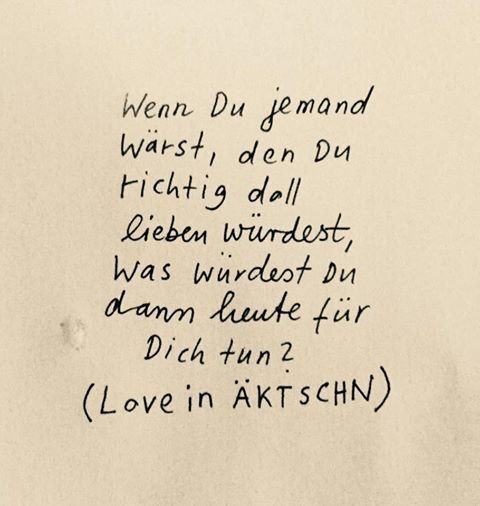 Wenn Du jemand
wärst, den Du
richtig doll
lieben würdest,
was würdest Du
dann heute für
Dich tun?
(Love in ÄKTSCHN)